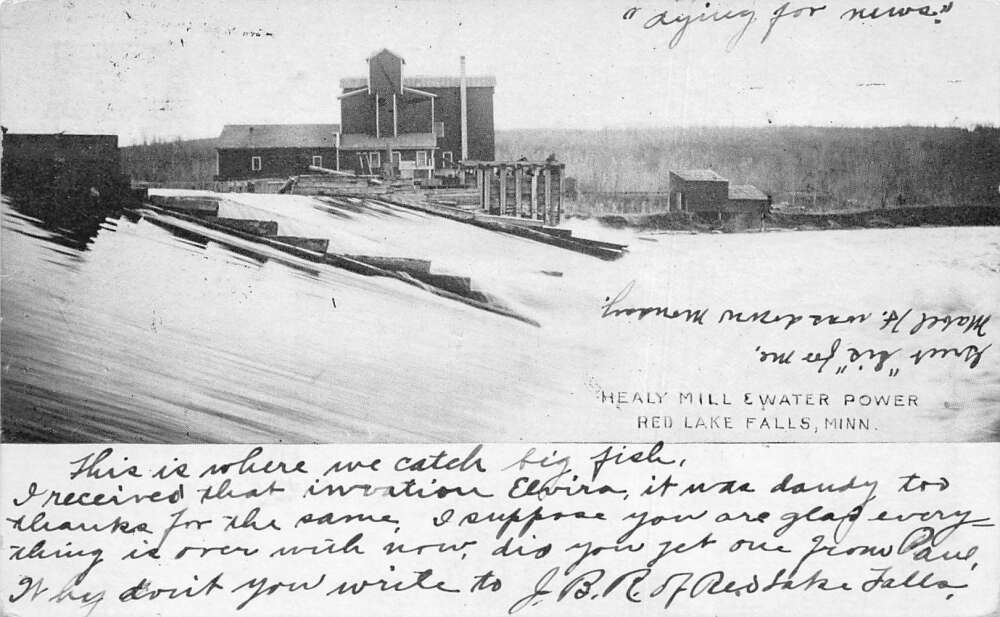 "dying for news."
Mabel H. was down Monday.
Greet "Sid" for me.
HEALY MILL & WATER POWER
RED LAKE FALLS, MINN.
This is where we catch big fish,
I received that invation Elvira, it was dandy too
thanks for the same, I suppose you are glad every-
thing is over with now, did you get one from Paul,
Why don't you write to J. B. R. of Red Lake Falls.